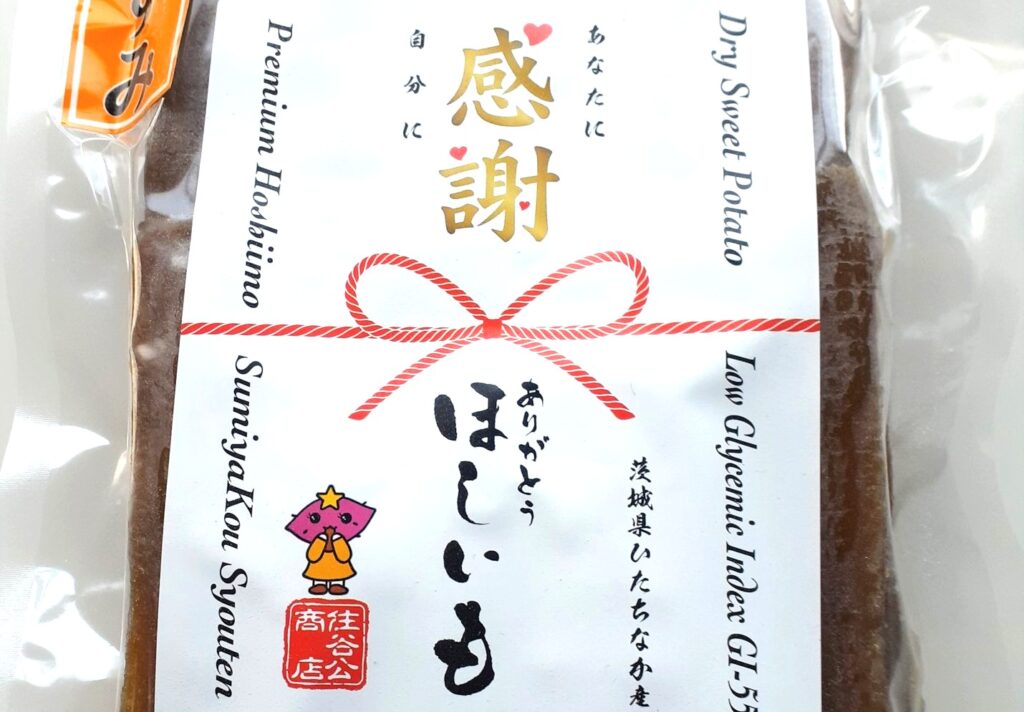 Dry Sweet Potato
Low Glycemic Index GI-55
あなたに
感謝
自分に
茨城県ひたちなか産
ありがとう
ほしいも
Premium Hoshiimo
SumiyaKou Syouten
住谷公
商店
み